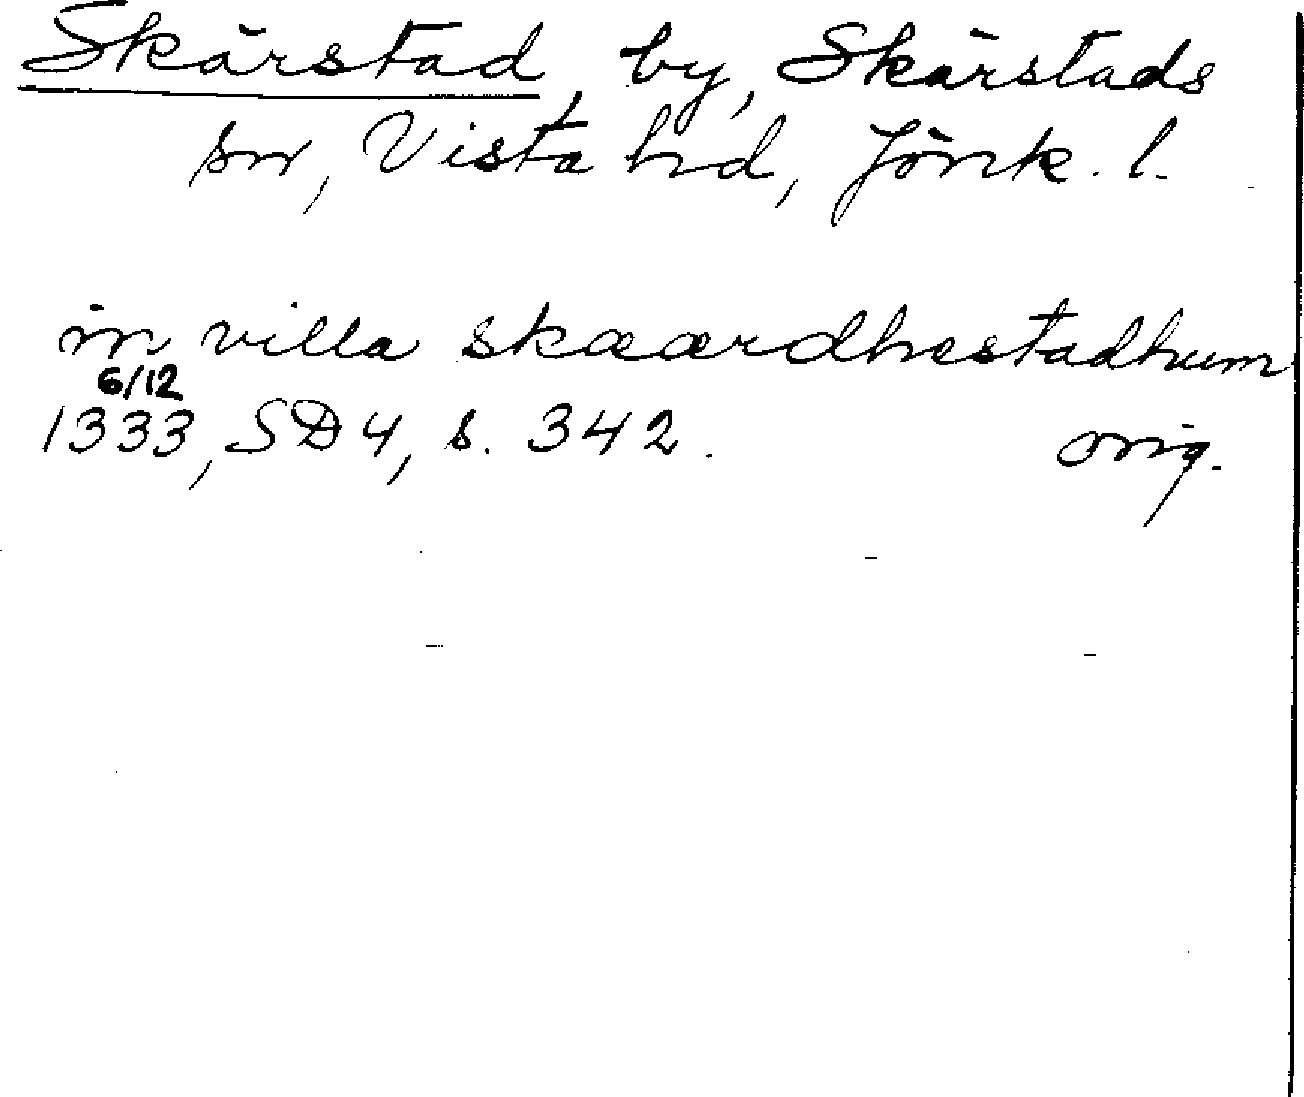 Skärstad, by, Skärstads
sn, Vista hd, Jönk. l.
in villa skæærdhestadhum
6/12
1333, SD 4, s. 342. orig.